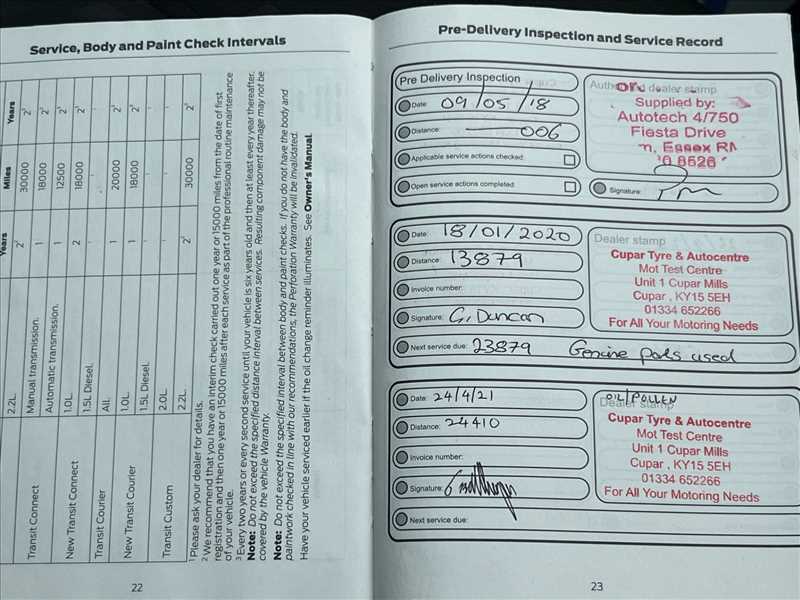 Service, Body and Paint Check Intervals
Years Miles Years
2.2L. 2² 30000 2³
Transit Connect Manual transmission. 1 18000 2³
Automatic transmission. 1 12500 2³
New Transit Connect 1.0L. 2 18000 2³
1.5L Diesel. - - -
Transit Courier All. 1 20000 2³
New Transit Courier 1.0L. 1 18000 2³
1.5L Diesel. - - -
Transit Custom 2.0L. - - -
2.2L. 2² 30000 2³
¹ Please ask your dealer for details.
² We recommend that you have an interim check carried out one year or 15000 miles from the date of first
registration and then one year or 15000 miles after each service as part of the professional routine maintenance
of your vehicle.
³ Every two years or every second service until your vehicle is six years old and then at least every year thereafter.
Note: Do not exceed the specified distance interval between services. Resulting component damage may not be
covered by the vehicle Warranty.
Note: Do not exceed the specified interval between body and paint checks. If you do not have the body and
paintwork checked in line with our recommendations, the Perforation Warranty will be invalidated.
Have your vehicle serviced earlier if the oil change reminder illuminates. See Owner's Manual.
22
Pre-Delivery Inspection and Service Record
Pre Delivery Inspection
Date: 09/05/18
Distance: 006
Applicable service actions checked:
Open service actions completed:
Authorised dealer stamp
Supplied by:
Autotech 4/750
Fiesta Drive
Essex RM
Signature:
Date: 18/01/2020
Distance: 13879
Invoice number:
Signature: G. Duncan
Next service due: 23879 Genuine parts used
Dealer stamp
Cupar Tyre & Autocentre
Mot Test Centre
Unit 1 Cupar Mills
Cupar , KY15 5EH
01334 652266
For All Your Motoring Needs
Date: 24/4/21
Distance: 24410
Invoice number:
Signature:
Next service due:
OIL/POLLEN
Dealer stamp
Cupar Tyre & Autocentre
Mot Test Centre
Unit 1 Cupar Mills
Cupar , KY15 5EH
01334 652266
For All Your Motoring Needs
23